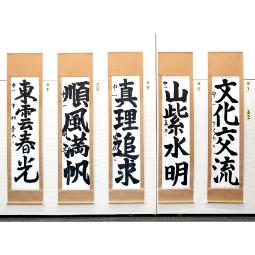 文化交流
山紫水明
真理追求
順風満帆
東雲春光